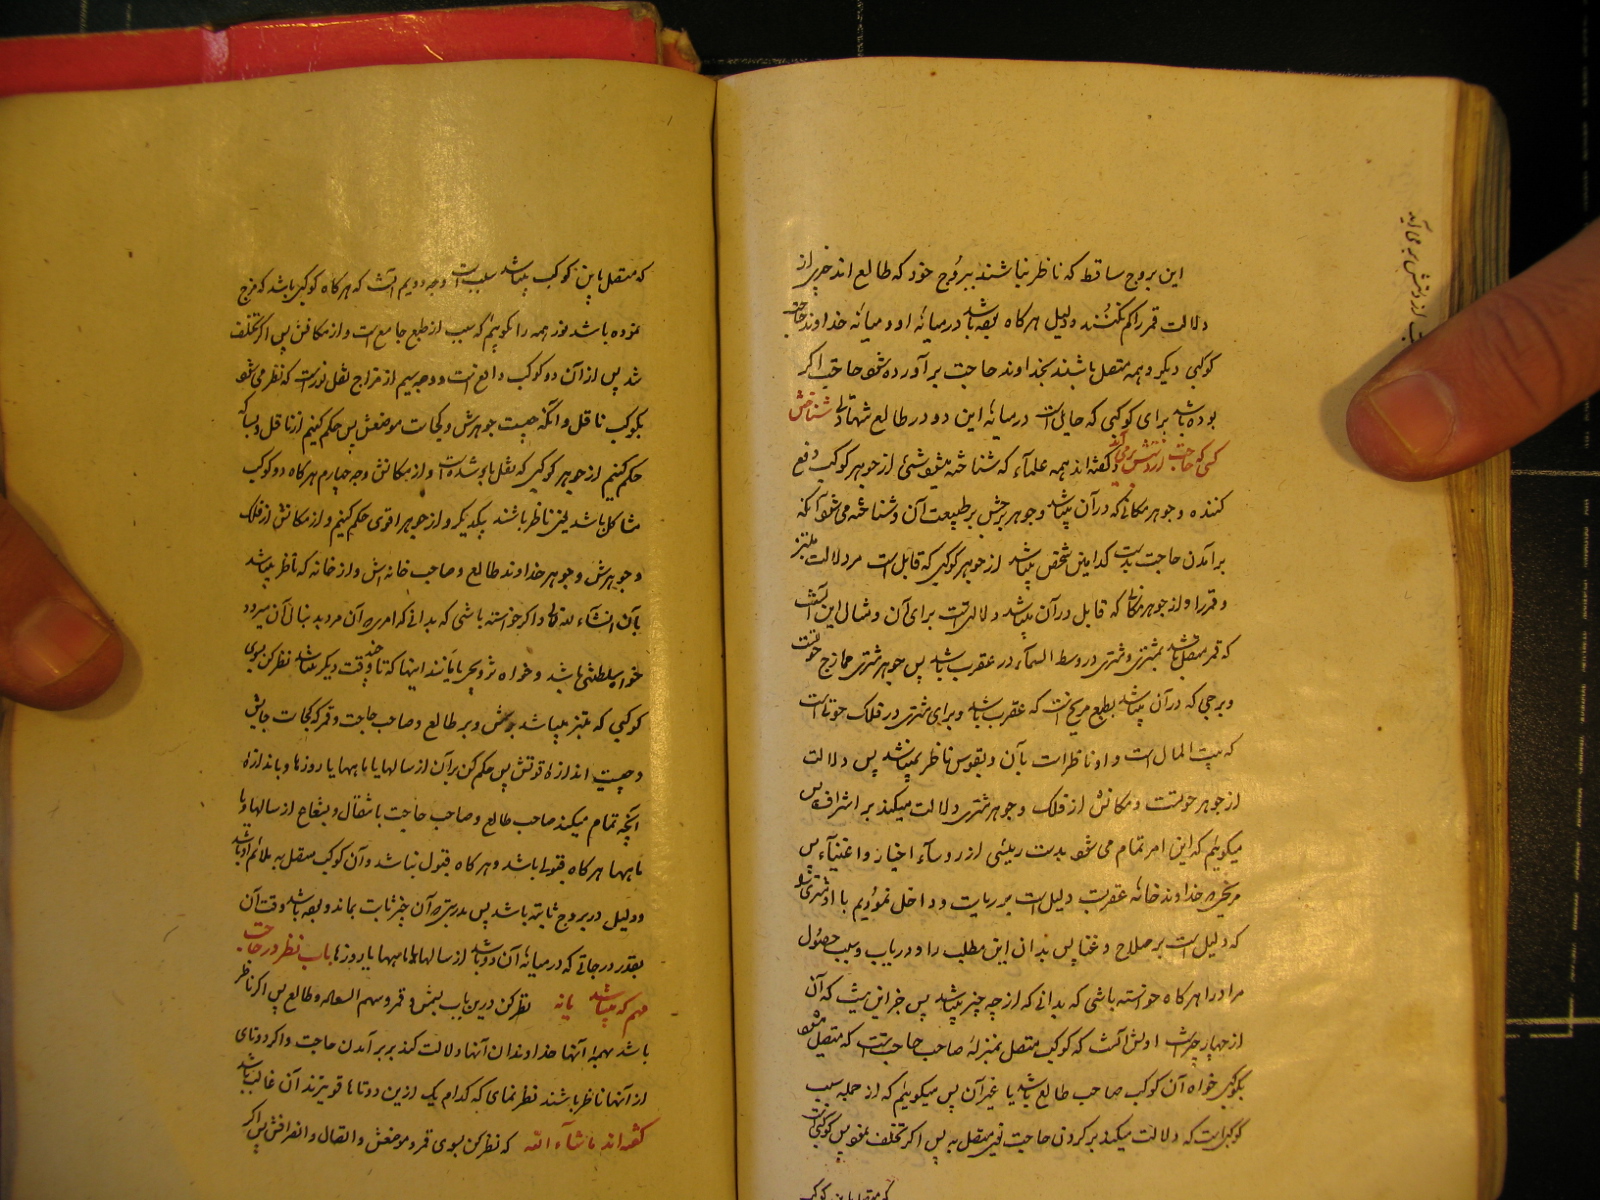 این بروج ساقط که ناظر نباشند ببروج خود که طالع اند چیزی از
دلالت قمر را کم نکنند و دلیل هرگاه بوده باشد در میانهٔ او و میانهٔ خداوند حاجت
کوکبی دیگر و همه متصل باشند بخداوند حاجت برآورده شود حاجت اگر
بوده باشد برای کوکبی که حایل است در میانهٔ این دو در طالع شهادتی شناختن
کسی که حاجت از دستش برمی‌آید گفته‌اند همه علماء که شناخته میشود شئ از جوهر کوکب دفع
کننده و جوهر مکانی که در آن میباشد و جوهر برجش بر طبیعت آن و شناخته می‌شود آنکه
برآمدن حاجت بدست کدامین شخص میباشد از جوهر کوکبی که قابل است مر دلالت مبتز
و قمر را و از جوهر مکانی که قابل در آن میباشد دلالتست برای آن و مثال این آنست
که قمر متصل باشد بمشتری و مشتری در وسط السماء در عقرب باشد پس جوهر مشتری ممازج
و برجی که در آن میباشد بطبع مریخ است که عقرب باشد و برای مشتری در فلک حوتا است
که بیت المال است و او ناظر است بآن و بقوس ناظر نمیباشد پس دلالت
از جوهر حوتست و مکانش از فلک و جوهر مشتری دلالت میکند بر اشراف پس
میگویم که این امر تمام می‌شود بدست رئیسی از رؤساء اخیار و اغنیاء پس
مریخ که خداوند خانهٔ عقرب دلیل است بر ریاست و داخل نمودیم با او مشتری را
که دلیل است بر صلاح و غنا پس بدان این مطلب را و دریاب و سبب حصول
مراد را هرگاه خواسته باشی که بدانی که از چه چیز میباشد پس جز این نیست که آن
از چهار چیز است اولش آنست که کوکب متصل بمنزلهٔ صاحب حاجت است که متصل میشود
بکوکبی خواه آن کوکب صاحب طالع باشد یا غیر آن پس میگویم که از جمله سبب
کوکبی است که دلالت میکند بر کردن حاجت متصل به پس اگر تخلف نمود پس کوکبی است
که متصل باین کوکب
که متصل باین کوکب میباشد سبب است وجه دویم آنست که هرگاه کوکبی باشد که مزج
نموده باشد نور همه را گوییم که سبب از طبع جامع است و از مکانش پس اگر تخلف
شد پس از آن دو کوکب دافع است و وجه سیم از مزاج نقل نور است که نظر می‌شود
بکوکب ناقل و آنکه چیست جوهرش و کجاست موضعش پس حکم کنیم از ناقل و بسا که
حکم کنیم از جوهر کوکبی که نقل باو شده است و از مکانش وجه چهارم هرگاه دو کوکب
مشاکل باشد یعنی ناظر باشند بیکدیگر و از جوهر اقوی حکم کنیم و از مکانش از فلک
و جوهرش و جوهر خداوند طالع و صاحب خانه‌اش و از خانه که ناظر میباشد
بآن انشاء الله تعالی و اگر خواسته باشی که بدانی که امری که آن مرد بدنبال آن میرود
خواه سلطنتی باشد و خواه تزویجی یا مانند اینها که تا چند وقت دیگر میباشد نظر کن بسوی
کوکبی که مبتز میباشد بر طالع و صاحب حاجت و قمر که کجاست جایش
و چیست اندازهٔ قوتش پس حکم کن بر آن از سالها یا ماهها یا روزها و باندازهٔ
آنچه تمام میکند صاحب طالع و صاحب حاجت باتصال و بشعاع از سالها و یا
ماهها هرگاه قبولی باشد و هرگاه قبول نباشد و آن کوکب متصل به ملائم او باشد
و دلیل در بروج ثابته باشد پس بدرستیکه آن چیز ثابت بماند و بوده باشد وقت آن
بقدر درجاتی که در میانهٔ آن دو باشد از سالها یا ماهها یا روزها باب نظر در حاجت
مهم که میباشد یا نه نظر کن درین باب بشمس و قمر و سهم السعاده و طالع پس اگر ناظر
باشد بهمهٔ آنها خداوندان آنها دلالت کند بر برآمدن حاجت و اگر دوتای
از آنها ناظر باشند نظر نمای که کدام یک ازین دوتا قویترند آن غالب باشد
گفته‌اند ماشاء الله که نظر کن بسوی قمر و موضعش و اتصال و انصرافش پس اگر